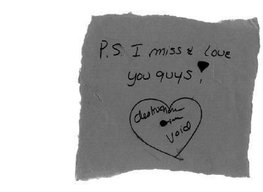 P.S. I miss & love
you guys!
destruction
in
void